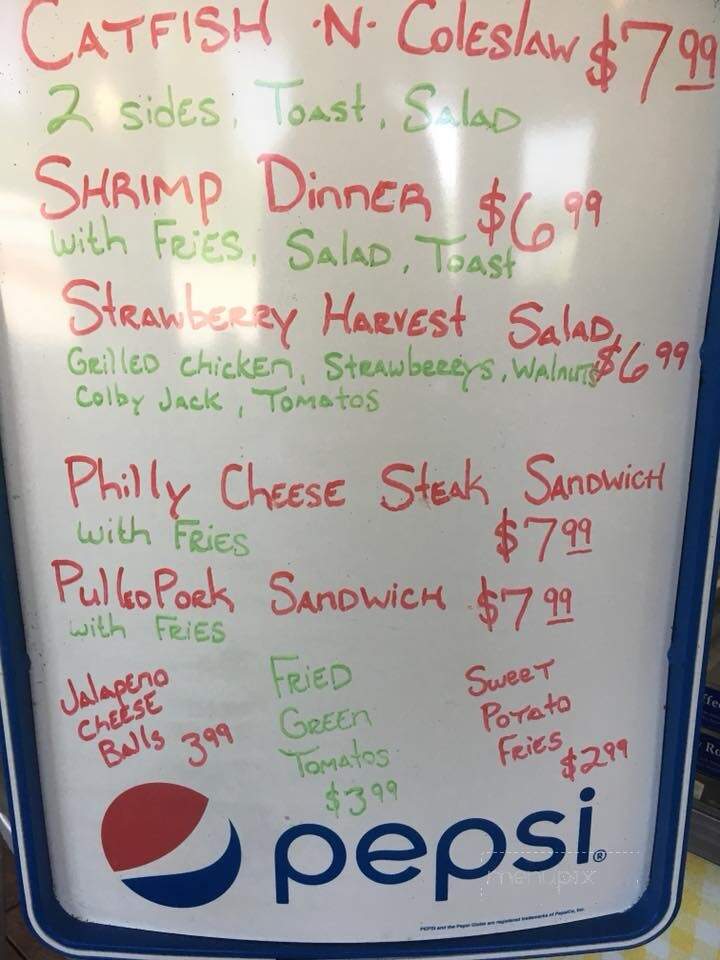 CATFISH ·N· COLESLAW $7 99
2 sides, Toast, Salad
SHRIMP DinnER $6 99
with FRiES, SALAD, Toast
STRAWbERRY HARVEST SALAD
GRillED chickEn, STRAWbERRYs, WAlnuts $6 99
Colby Jack, Tomatos
Philly CHEESE STEAk SANDWiCH
with FRiES $7 99
PullED PoRk SANDWiCH $7 99
with FRiES
Jalapeno
CHEESE
BAlls 3 99
FRiED
GREEn
TomAtos
$3 99
SwEET
PoTAto
FRiES
$2 99
pepsi®
PEPSI and the Pepsi Globe are registered trademarks of PepsiCo, Inc.
menupix